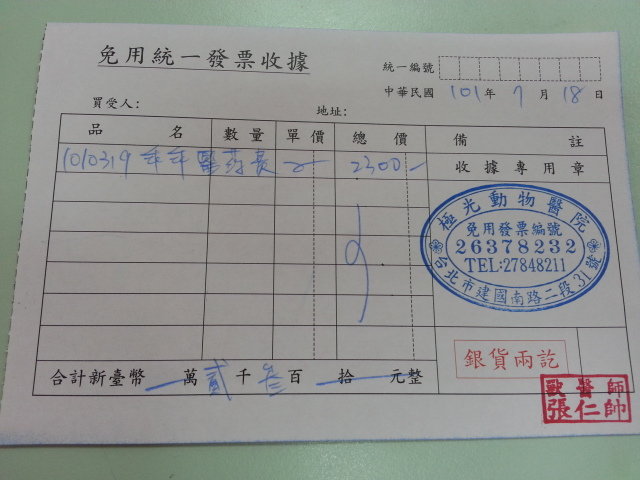 免用統一發票收據
統一編號
中華民國 101 年 7 月 18 日
買受人: 地址:
品名 數量 單價 總價 備註
1010319 乖乖醫藥費 2300 收據專用章
極光動物醫院
免用發票編號
26378232
TEL:27848211
台北市建國南路二段31號
銀貨兩訖
合計新臺幣 萬 貳 千 叁 百 拾 元整
獸醫師
張仁帥